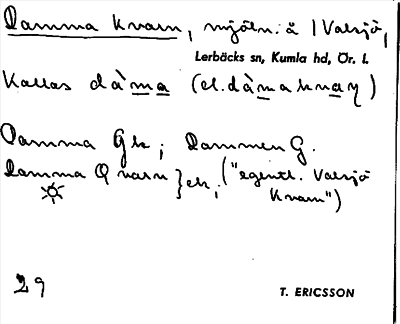 Damma kvarn, mjöln: å 1 Valsjö,
Lerbäcks sn, Kumla hd, Ör. l.
Kallas dàma (el. dàmaknaɳ)
Damma Gk; Dammen G.
Damma Qvarn } ek; ("egentl. Valsjö
Kvarn")
29
T. ERICSSON